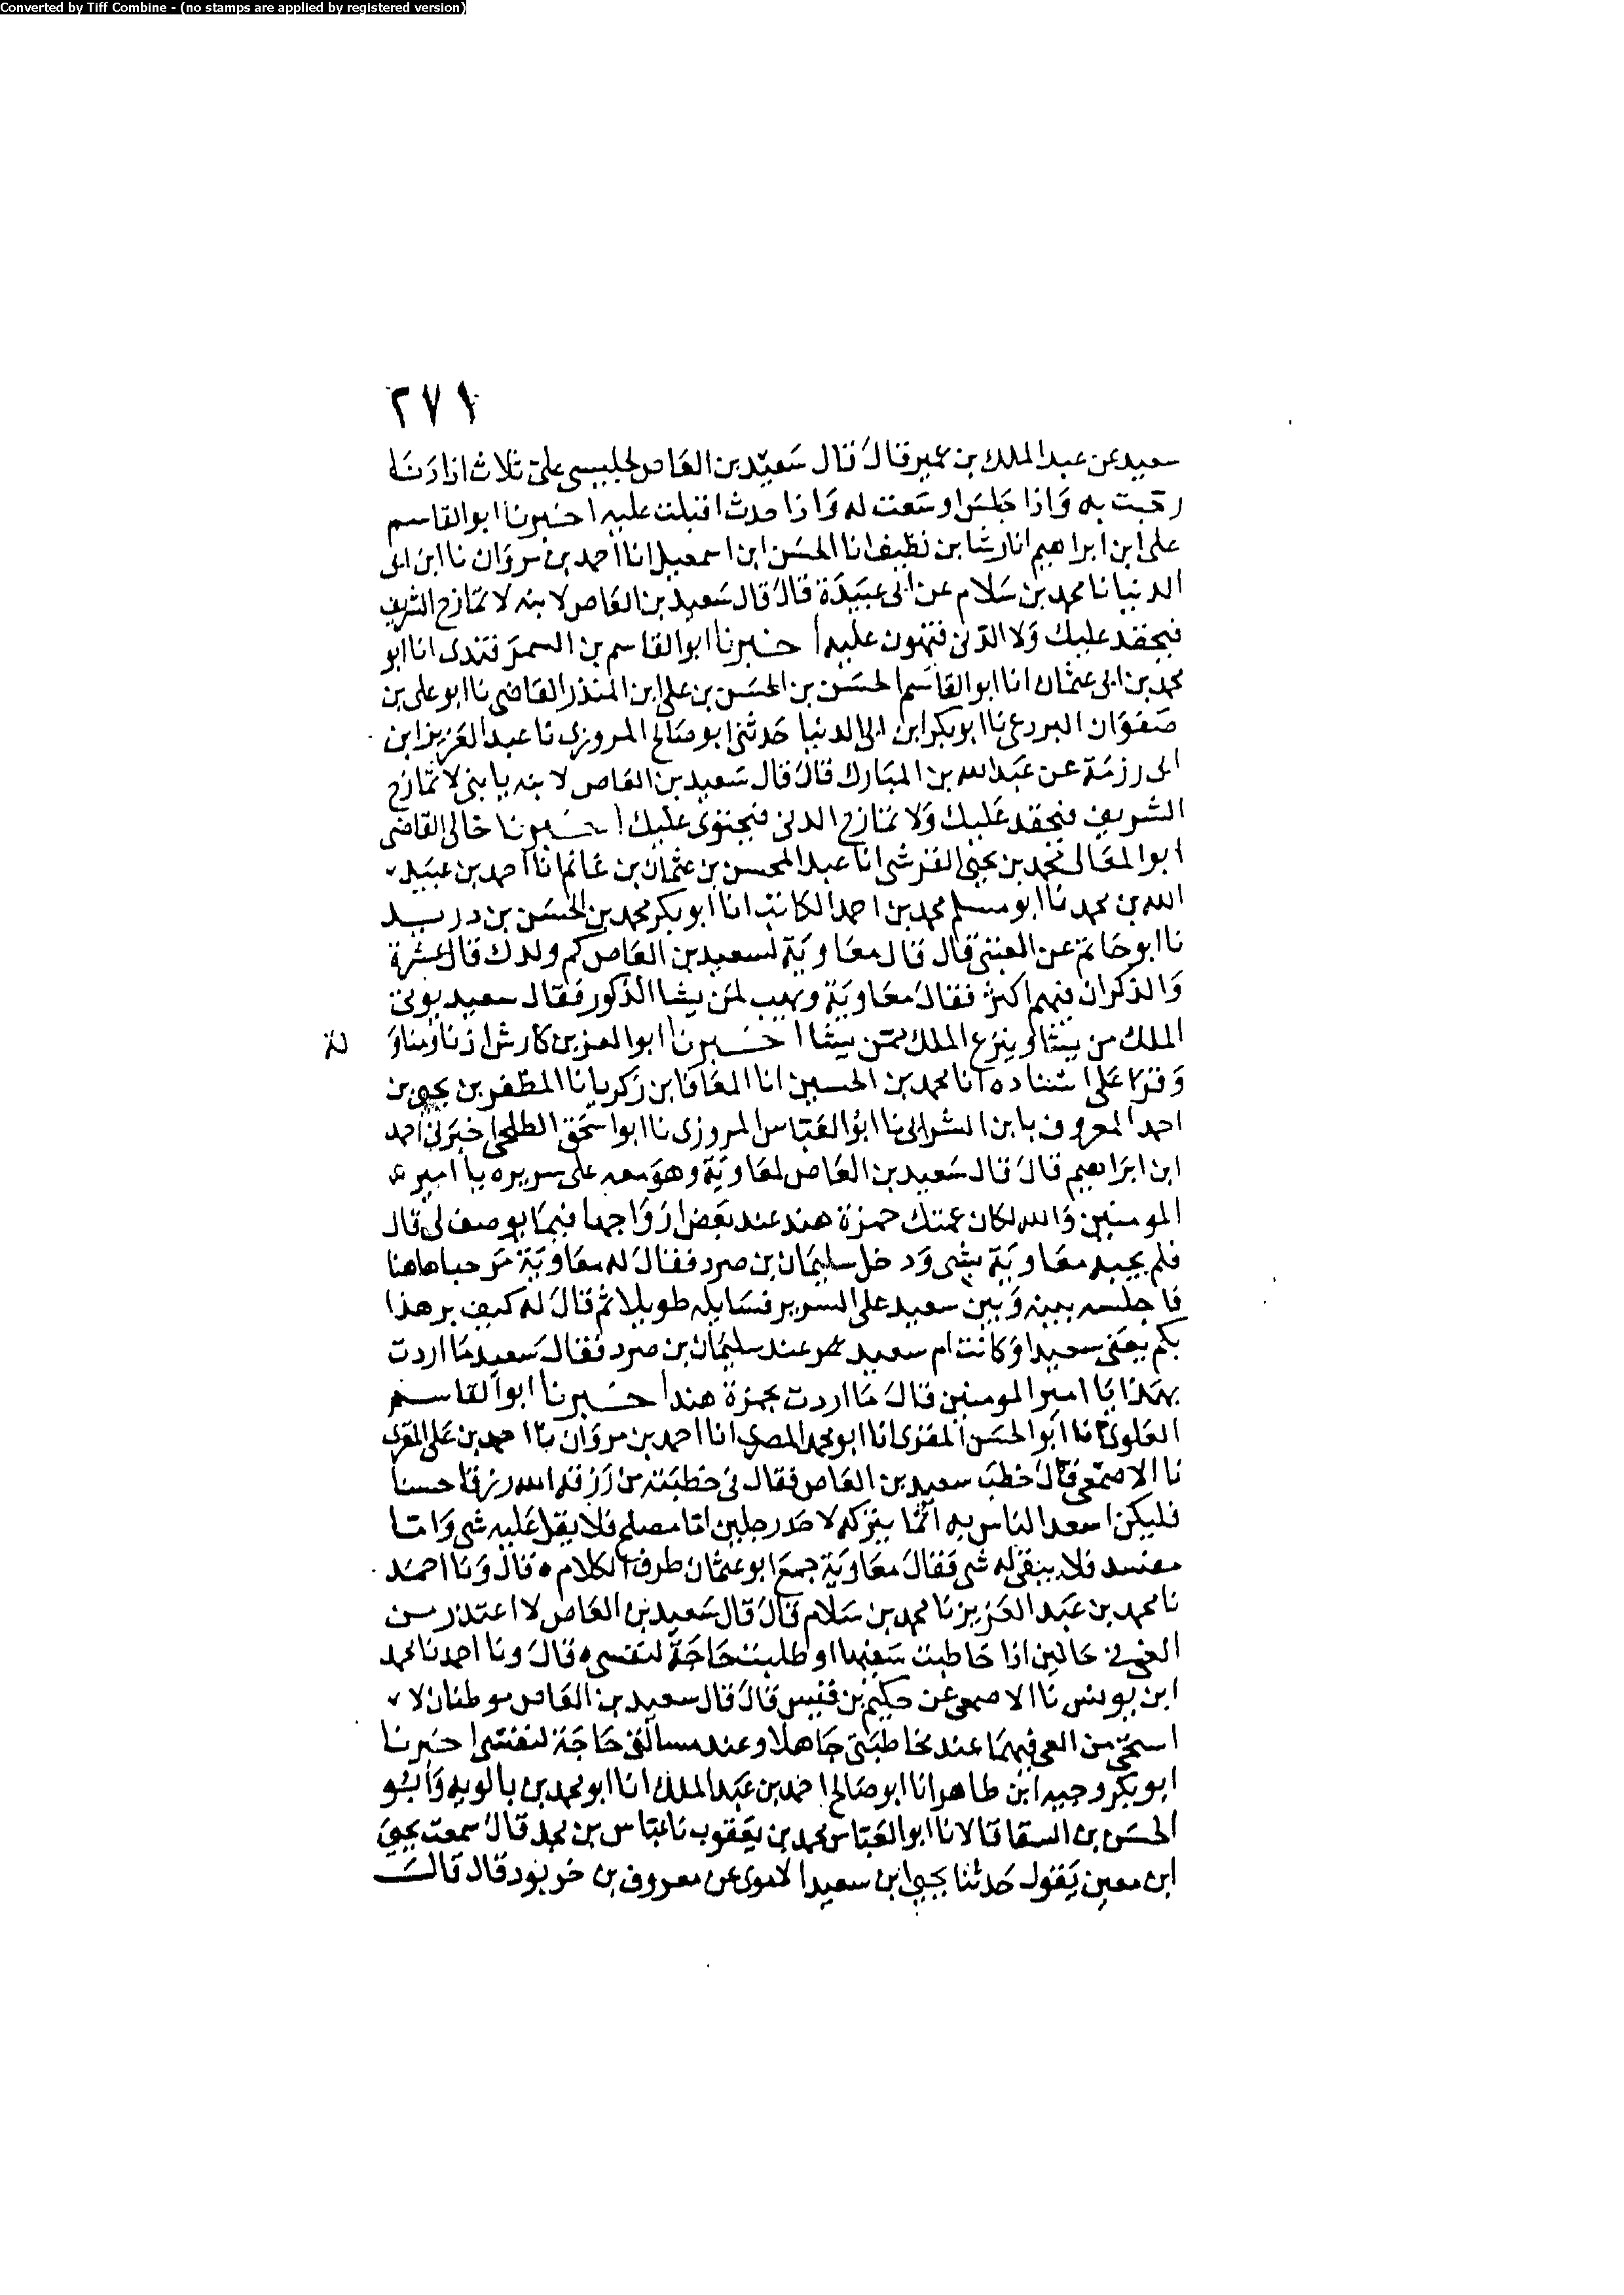 Converted by Tiff Combine - (no stamps are applied by registered version)
٢٧١
سعيد عن عبد الملك بن عمير قال قال سعيد بن العاص لجليسي على ثلاث اذا دنا
رحبت به واذا جلس اوسعت له واذا حدث اقبلت عليه اخبرنا ابو القاسم
على ابن ابراهيم انا رشا بن نظيف انا الحسن ابن اسمعيل انا احمد بن مروان نا ابن ابى
الدنيا نا محمد بن سلام عن ابى عبيدة قال قال سعيد بن العاص لابنه لا تمازح الشريف
فيحقد عليك ولا الدنى فتهون عليه اخبرنا ابو القاسم بن السمرقندى انا ابو
محمد بن ابى عثمان انا ابو القاسم الحسن بن الحسن بن على ابن المنذر القاضى نا ابو على بن
صفوان البردعى نا ابو بكر ابن ابى الدنيا حدثنى ابو صالح المروزى نا عبد العزيز ابن
ابى رزمة عن عبد الله بن المبارك قال قال سعيد بن العاص لابنه يا بنى لا تمازح
الشريف فيحقد عليك ولا تمازح الدنى فيجترى عليك اخبرنا خالى القاضى
ابو المعالى محمد بن يحيى القرشى انا عبد المحسن بن عثمان بن غانم انا احمد بن عبيد
الله بن محمد نا ابو مسلم محمد بن احمد الكاتب انا ابو بكر محمد بن الحسن بن دريد
نا ابو حاتم عن العتبى قال قال معاوية لسعيد بن العاص كم ولدك قال عشرة
والذكران فيهم اكثر فقال معاوية ويهب لمن يشا الذكور فقال سعيد يوتى
الملك من يشا وينزع الملك ممن يشا اخبرنا ابو العز بن كادش اذنا ومناو لة
وقرا على اسناده انا محمد بن الحسين انا المعافا بن زكريا نا المظفر بن يحيى بن
احمد المعروف بابن الشرابى نا ابو العباس المروزى نا ابو اسحق الطلحى اخبرنى احمد
ابن ابراهيم قال قال سعيد بن العاص لمعاوية وهو معه على سريره يا امير
المومنين والله لكان عمتك حمزة هند عند بعض ازواجها فيما يوصف لى قال
فلم يجبه معاوية بشى ودخل سليمان بن صرد فقال له معاوية مرحبا هاهنا
فاجلسه بينه وبين سعيد على السرير فسايله طويلا ثم قال له كيف بر هذا
بكم يعنى سعيدا وكانت ام سعيد عند سليمان بن صرد فقال سعيد ما اردت
بهذا يا امير المومنين قال ما اردت بحمزة هند اخبرنا ابو القاسم
العلوى انا ابو الحسن المقرى انا ابو محمد المصرى انا احمد بن مروان نا احمد بن على المقرى
نا الاصمعى قال خطب سعيد بن العاص فقال فى خطبته من رزقه الله رزقا حسنا
فليكن اسعد الناس به انما يتركه لاحد رجلين اما مصلح فلا يقل عليه شى واما
مفسد فلا يبقى له شى فقال معاوية جمع ابو عثمان طرف الكلام ه قال ونا احمد
نا محمد بن عبد العزيز نا محمد بن سلام قال قال سعيد بن العاص لا اعتذر من
العى فى حالين اذا خاطبت سفيها او طلبت حاجة لنفسى ه قال ونا احمد نا محمد
ابن يونس نا الاصمعى عن حكيم بن قيس قال قال سعيد بن العاص موطنان لا
استحى من العى فيهما عند مخاطبتى جاهلا وعند مسالتى حاجة لنفسى اخبرنا
ابو بكر وجيه ابن طاهر انا ابو صالح احمد بن عبد الملك انا ابو محمد بن بالويه وابو
الحسن بن السقا قالا نا ابو العباس محمد بن يعقوب نا عباس بن محمد قال سمعت يحيى
ابن معين يقول حدثنا يحيى ابن سعيد الاموى عن معروف بن خربوذ قال قالت